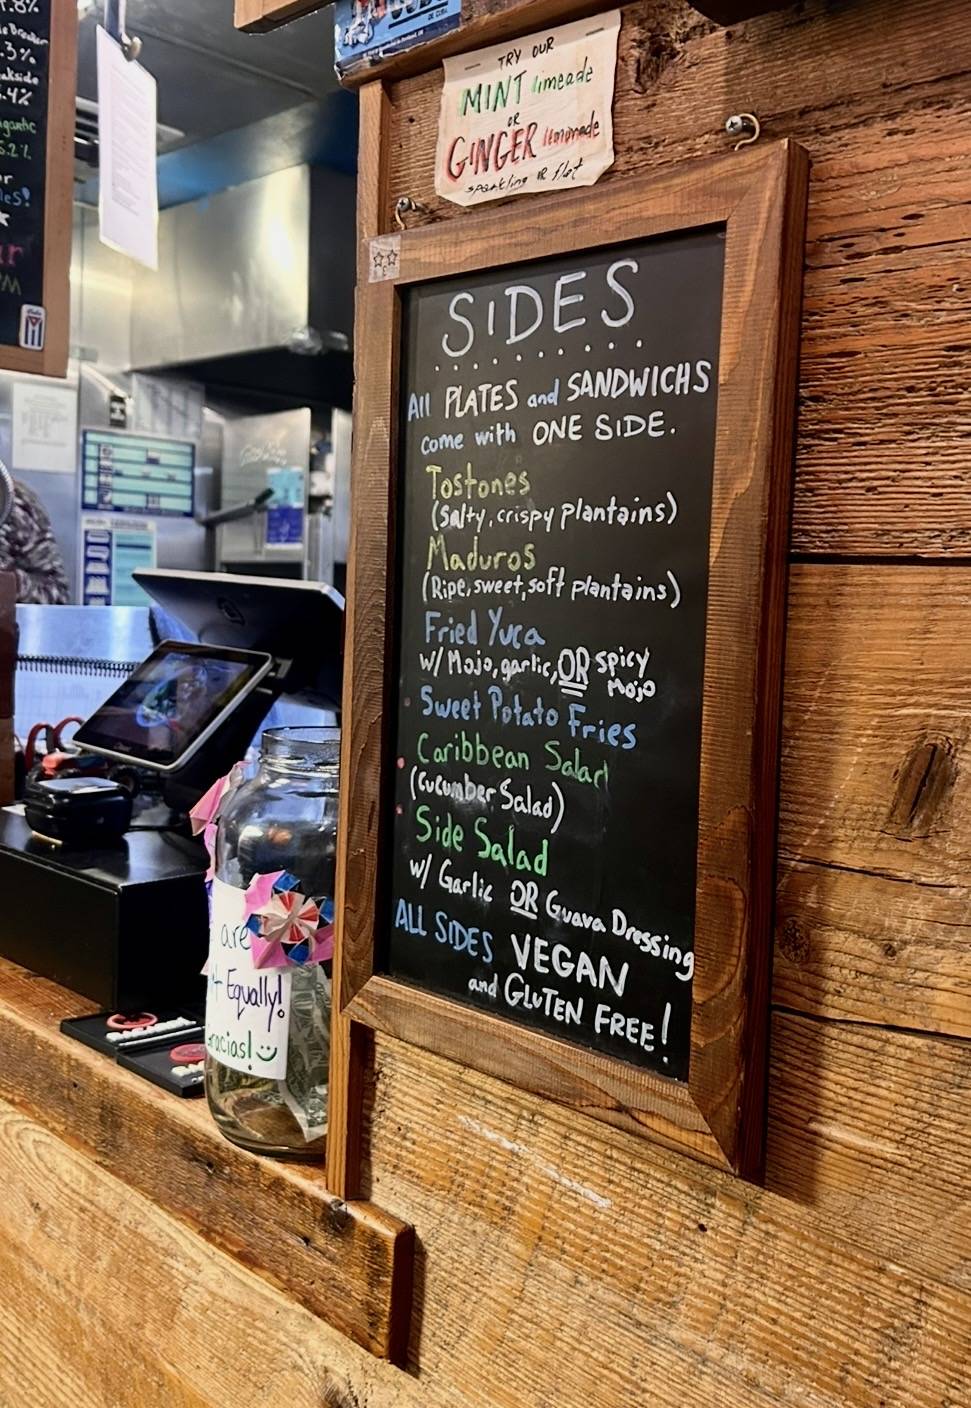 .3%
.4%
TRY OUR
MINT limeade
OR
GINGER lemonade
sparkling OR flat
SIDES
All PLATES and SANDWICHS
come with ONE SIDE.
Tostones
(Salty, crispy plantains)
Maduros
(Ripe, sweet, soft plantains)
Fried Yuca
w/ Mojo, garlic, OR spicy
Mojo
Sweet Potato Fries
Caribbean Salad
(Cucumber Salad)
Side Salad
w/ Garlic OR Guava Dressing
ALL SIDES VEGAN
and GLUTEN FREE!
are
Equally!
Gracias!